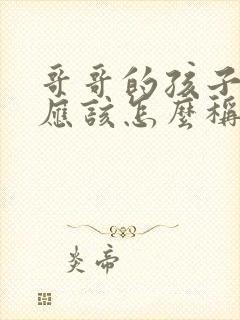 哥哥的孩子
應該怎麼稱
炎帝